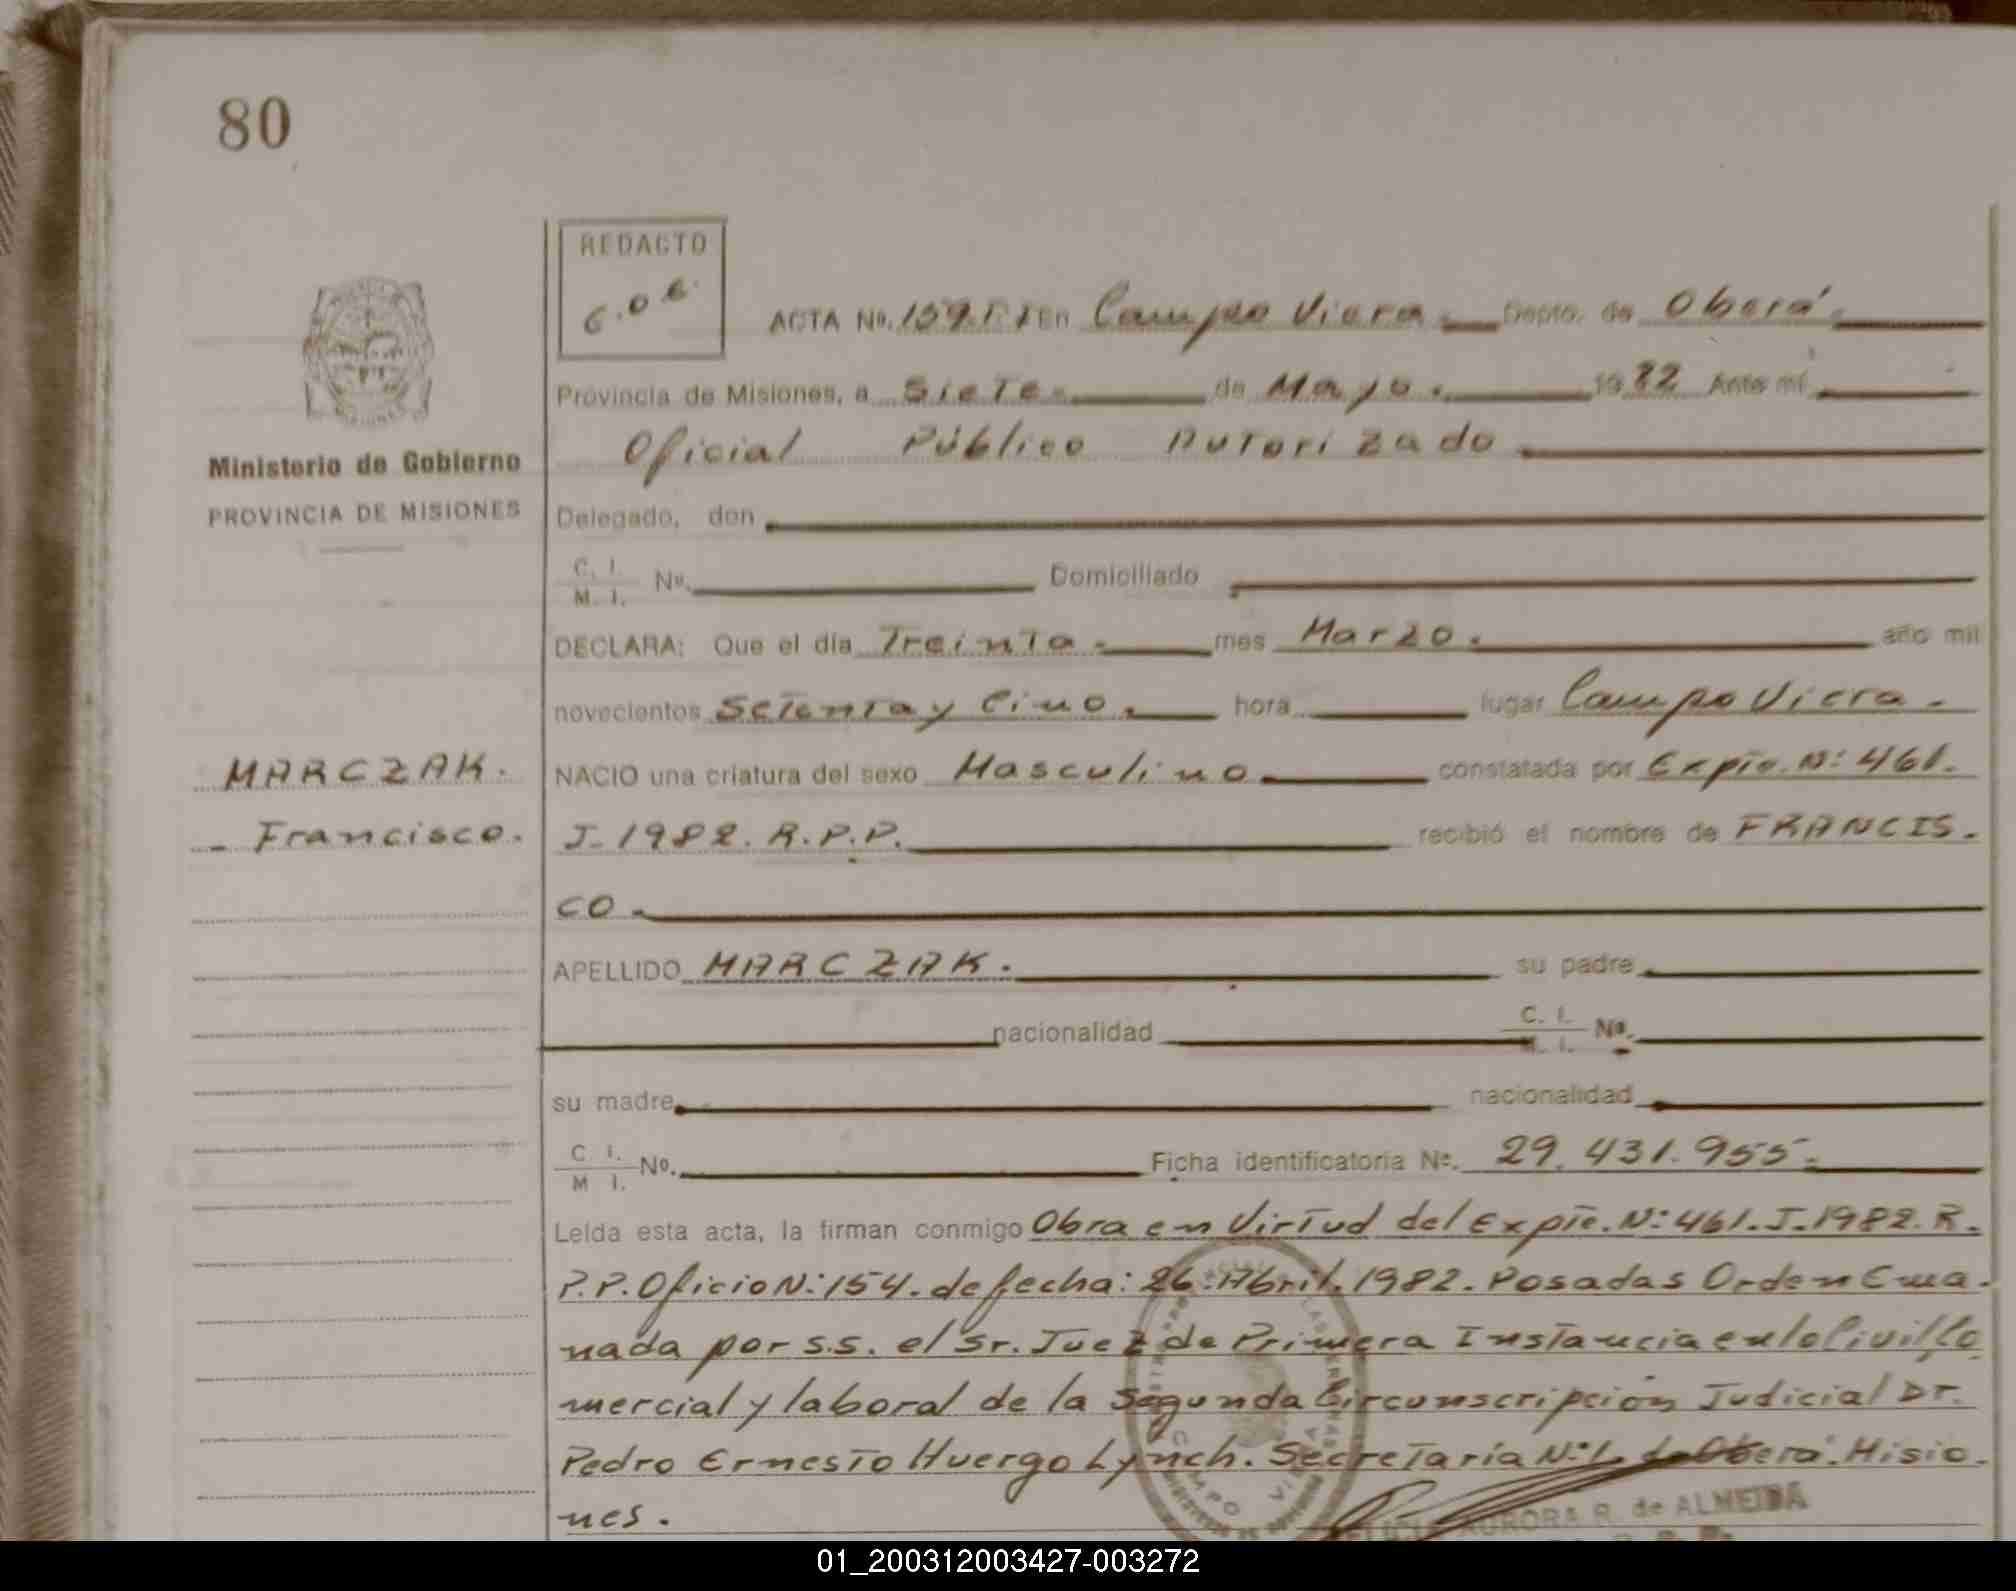 80
REDACTO
ACTA No. 159. T I En Campo Viera. Depto. de Oberá.
Provincia de Misiones, a Siete. de Mayo. 1982 Ante mí
Ministerio de Gobierno
Oficial Público Autorizado
PROVINCIA DE MISIONES
Delegado, don
C. I.
M. I. No. Domiciliado
DECLARA: Que el día Treinta. mes Marzo. año mil
novecientos Setenta y Cinco. hora lugar Campo Viera.
MARCZAK.
NACIO una criatura del sexo Masculino. constatada por Expte. N: 461.
Francisco.
J. 1982. R.P.P. recibió el nombre de FRANCIS.
CO.
APELLIDO MARCZAK. su padre
nacionalidad C. I. No.
M. I.
su madre nacionalidad
C. I.
M. I. No. Ficha identificatoria No. 29.431.955.
Leída esta acta, la firman conmigo Obra en Virtud del Expte. N: 461. J. 1982. R.
P.P. Oficio N: 154. de fecha: 26. Abril. 1982. Posadas Orden Ema.
nada por S.S. el Sr. Juez de Primera Instancia en lo Civil Co
mercial y laboral de la Segunda Circunscripción Judicial Dr.
Pedro Ernesto Huergo Lynch. Secretaría N: 1 de Oberá. Misio.
nes.
AURORA R. de ALMEIDA
CAMPO VIERA
01_200312003427-003272